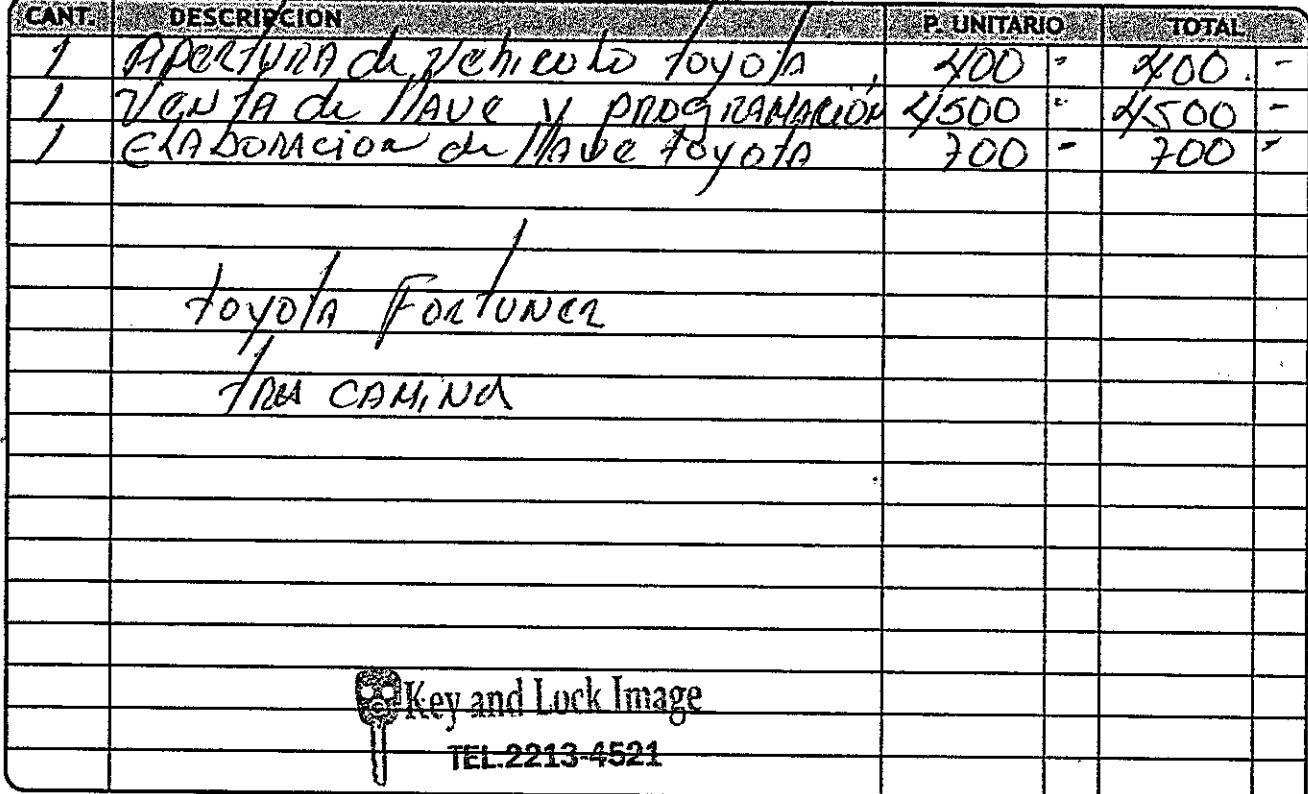 CANT. DESCRIPCION P. UNITARIO TOTAL
1 Apertura de Vehiculo toyota 400 - 400. -
1 Venta de llave y programación 4500 - 4500 -
1 Elaboracion de llave toyota 700 - 700 -
toyota Fortuner
Key and Lock Image
TEL.2213-4521